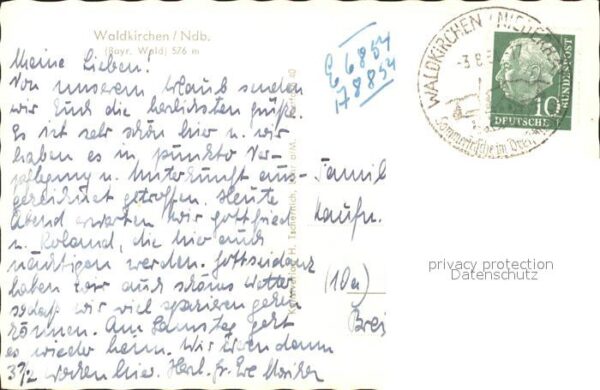 Waldkirchen / Ndb.
(Bayr. Wald) 576 m
Meine Lieben!
Von unserem Urlaub senden
wir Euch die herzlichsten Grüße.
Es ist sehr schön hier u. wir
haben es in puncto Ver-
pflegung u. Unterkunft aus-
gezeichnet getroffen. Heute
Abend erwarten wir Gottfried
u. Roland, die hier auch
nächtigen werden. Gottseidank
haben wir auch schönes Wetter
sodaß wir viel spazieren gehen
können. Am Samstag geht
es wieder heim. Wir waren dann
3 1/2 Wochen hier. Herzl. Gr. Eure
E 6854
178854
WALDKIRCHEN / NIEDERB
-3.8.5
Sommerfrische im Drei
10
DEUTSCHE
BUNDESPOST
Familie
Kaufm.
(10a)
Brei
privacy protection
Datenschutz